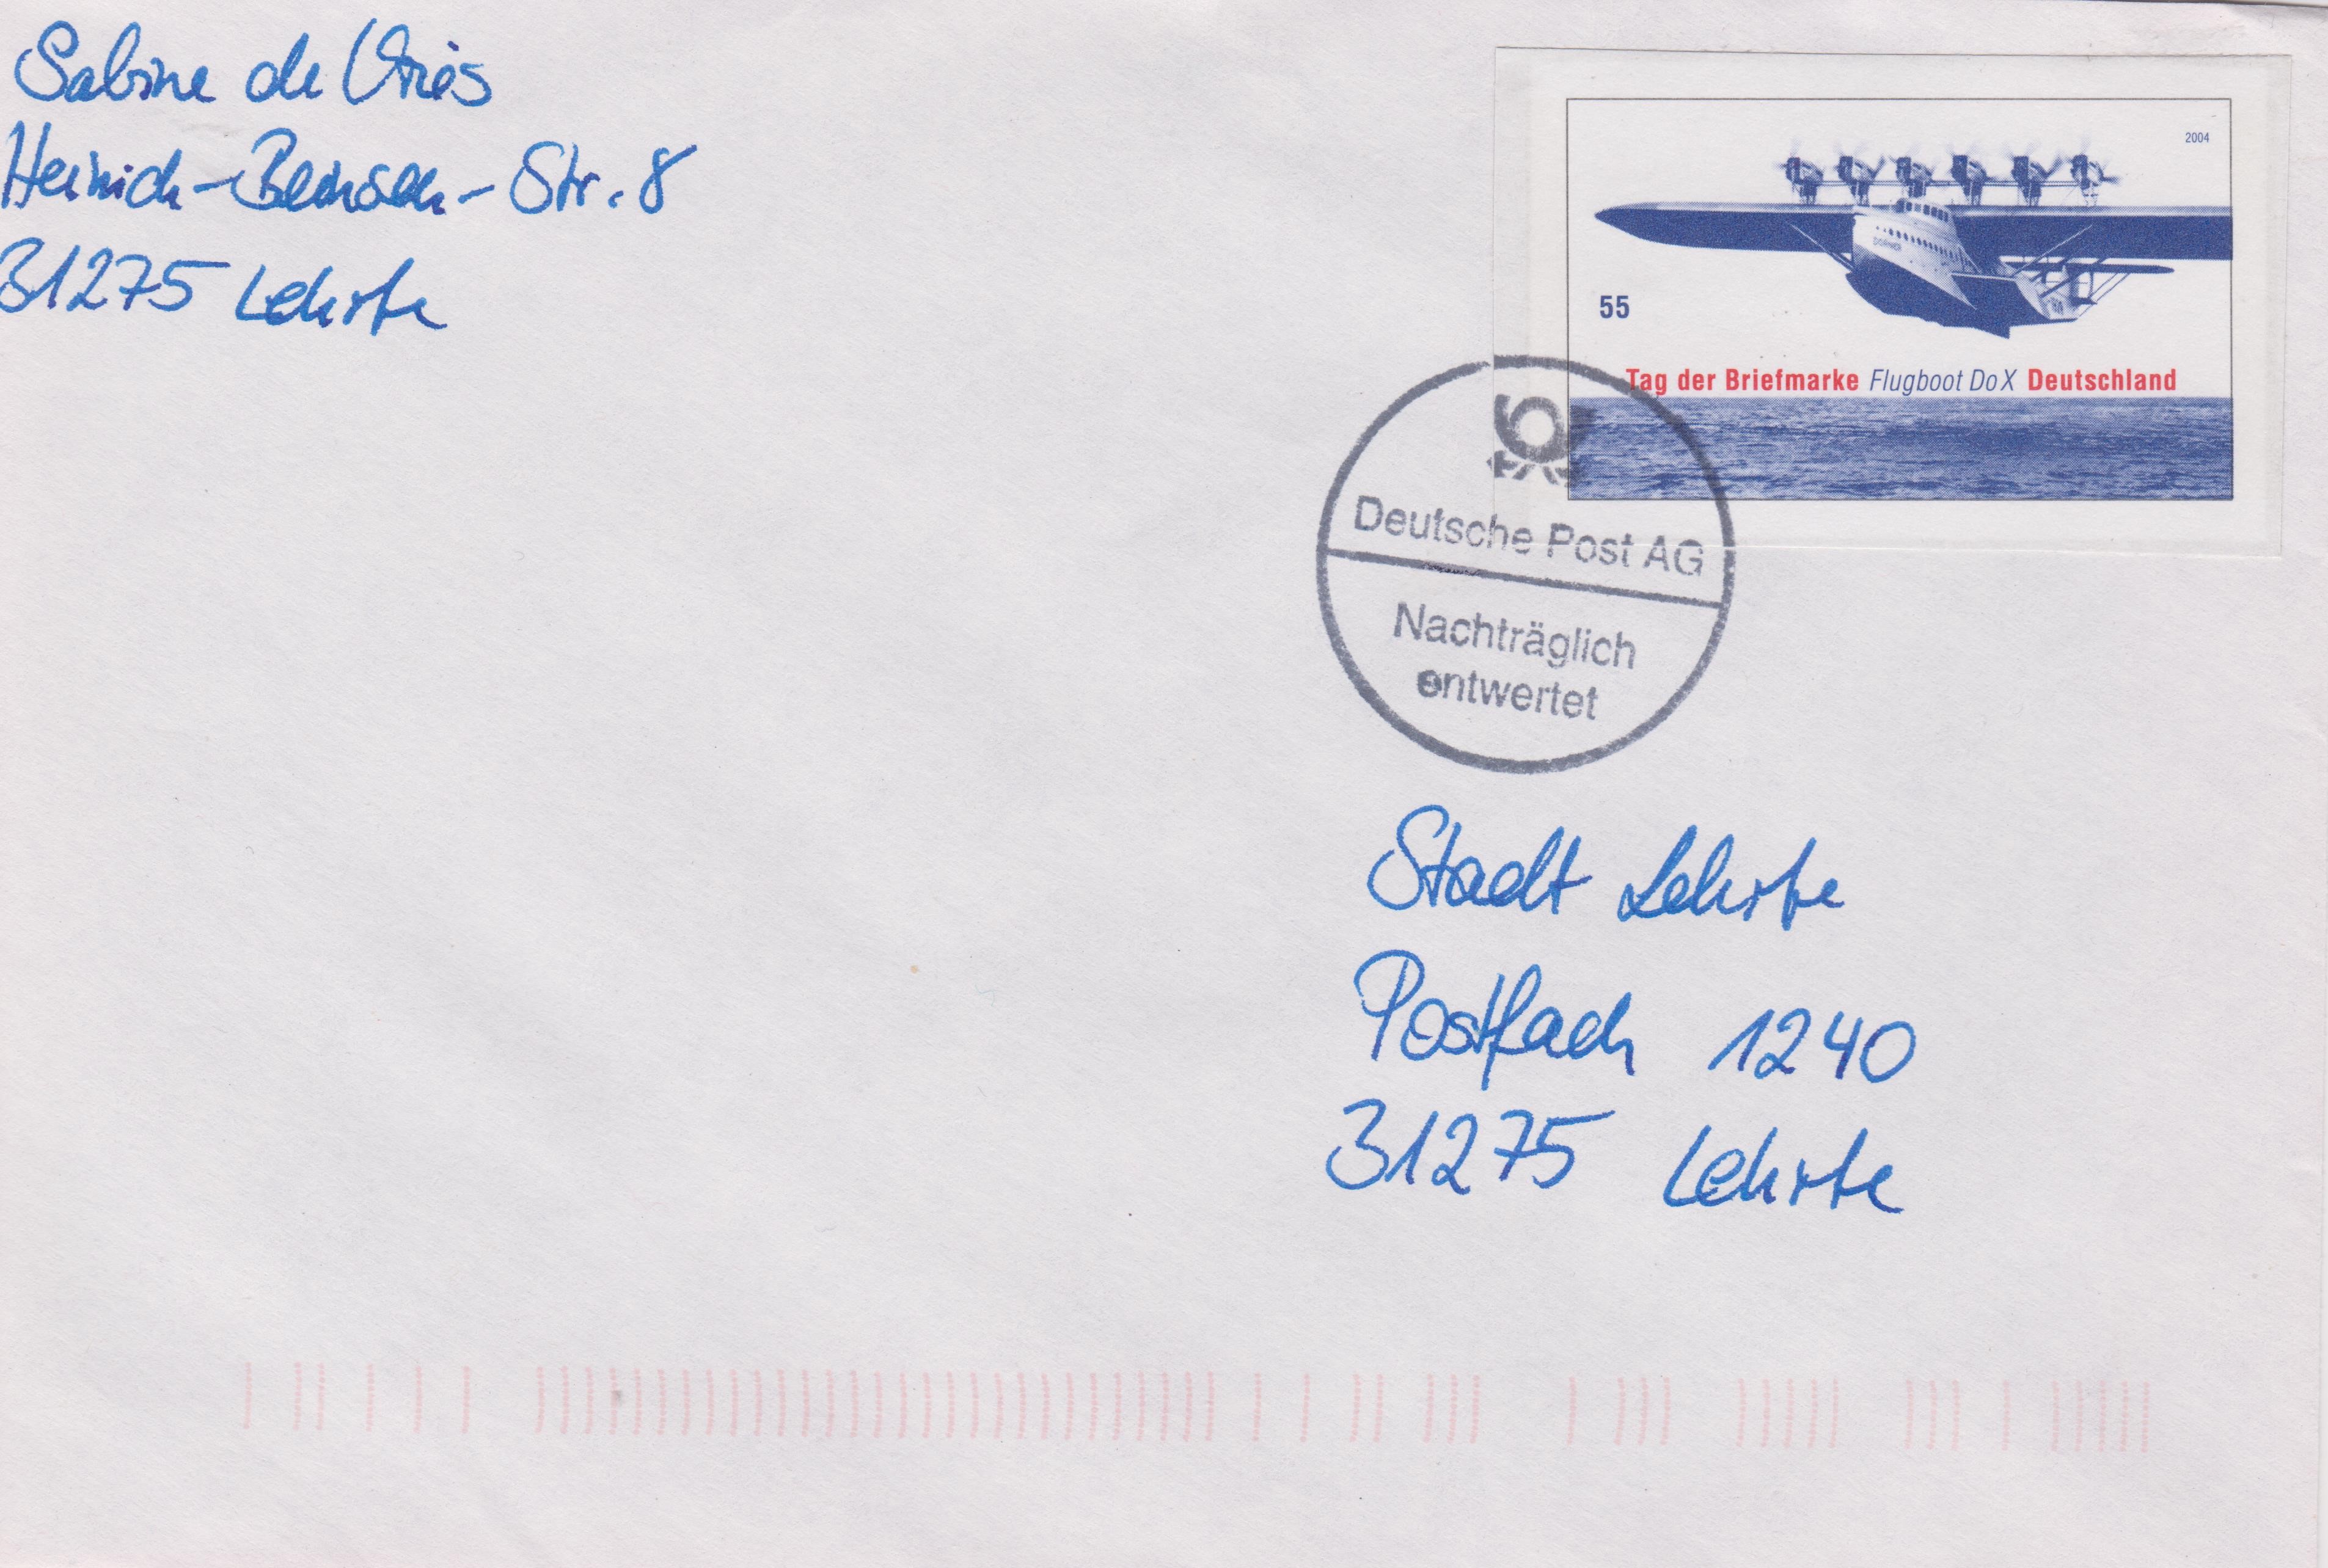 Sabine de Vries
Heinrich-Bensen-Str. 8
31275 Lehrte
2004
DORNIER
55
Tag der Briefmarke Flugboot Do X Deutschland
Deutsche Post AG
Nachträglich
entwertet
Stadt Lehrte
Postfach 1240
31275 Lehrte